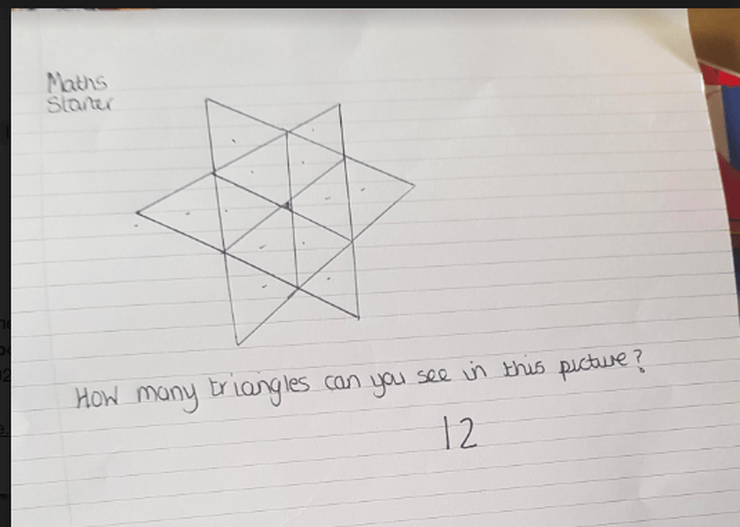 Maths
Starter
How many triangles can you see in this picture?
12